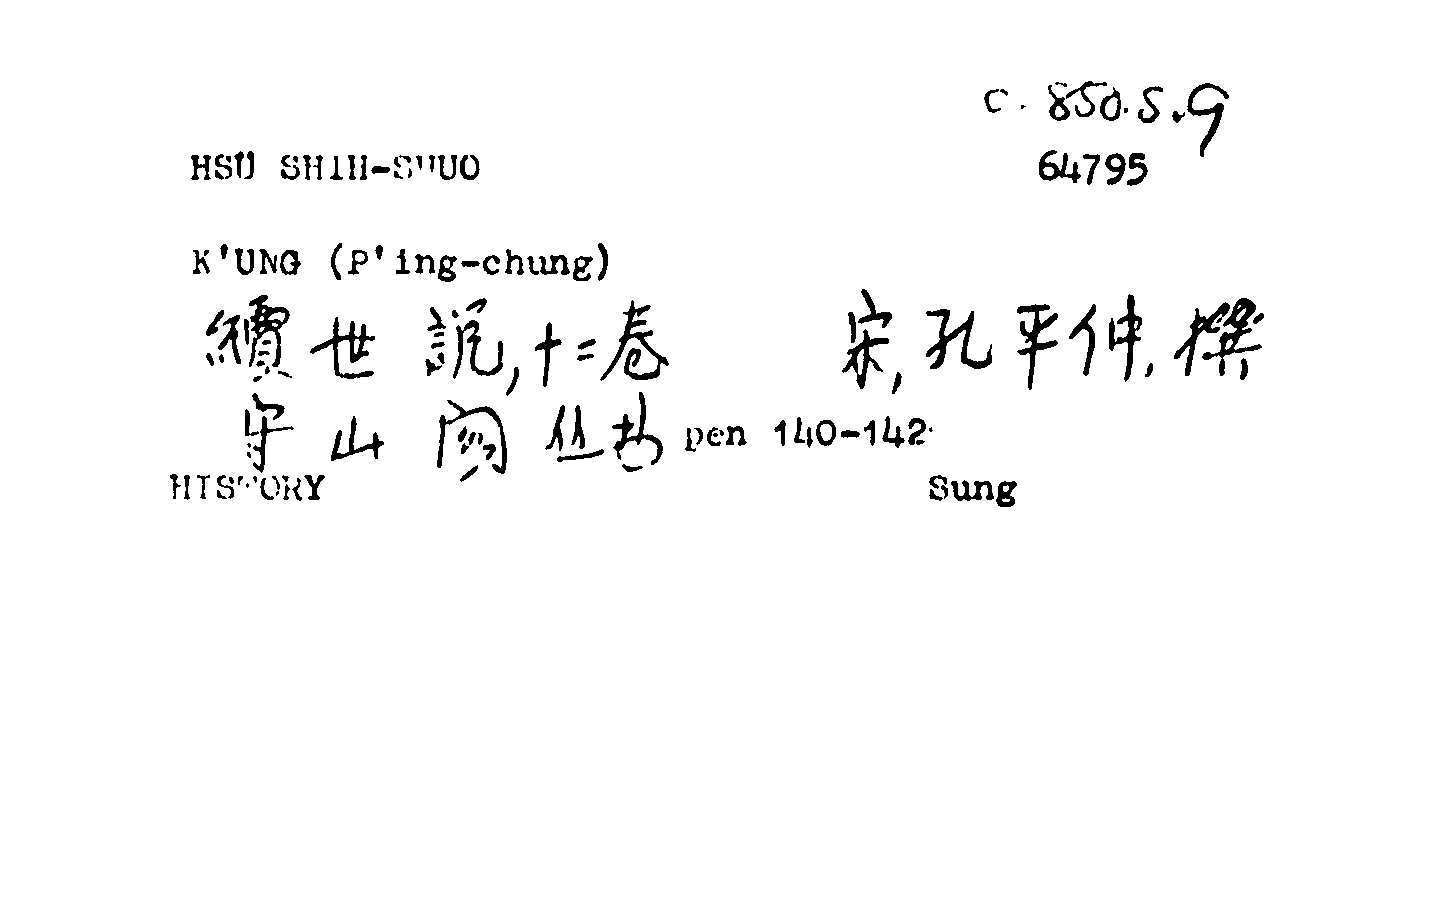 C. 850.5.9
HSÜ SHIH-SHUO 64795
K'UNG (P'ing-chung)
續世説,十二卷 宋,孔平仲.撰
守山阁丛书 pen 140-142
HISTORY Sung